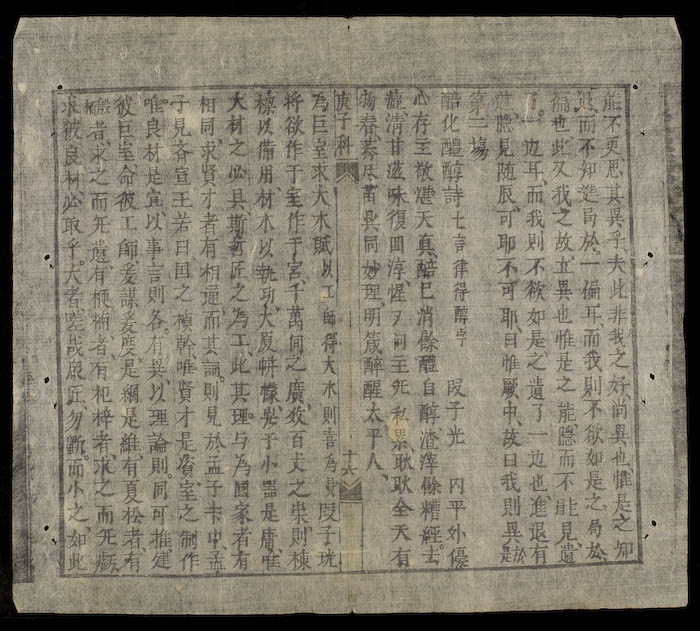 能不更思其異乎夫此非我之好尚異也惟是之知
退而不知進局於一偏耳而我則不欲如是之局於
偏也此又我之故立異也惟是之能隱而不能見遺
了一边耳而我則不欲如是之遺了一边也進退有
隱見随辰可耶不可耶曰惟厥中故曰我則異於是
第二場
醅化醴醇詩七言律得醇字 段子光 内平外優
心存主敬煉天真醅已消餘醴自醇渣滓餘糟經去
清甘滋味復回淳惺々同主无私累耿耿全天有
物春異同妙理明箴醉醒太平人
庚子科
十六
為巨室求大木賦以工師得大木則喜為韵 段子珖
將欲作于室作于宮千萬间之廣数百丈之崇則棟
樑以備用材木以執功大夏帡幪于小器是庸唯
大材之必具斯哲匠之為工此其理与為國家者有
相同求賢才者有相逼而其詞則見於孟子卡中孟
子見齐宣王若曰囯之楨幹唯賢才是資室之制作
唯良材是宜以事言則各有異以理論則同可推建
彼巨室命彼工師爰謀爰度是綱是維有夏松者有
殷栢者求之而无遺有楩楠者有杞梓者求之而无虧
求彼良材必取乎大者嗟哉匠勿斵而小之如此